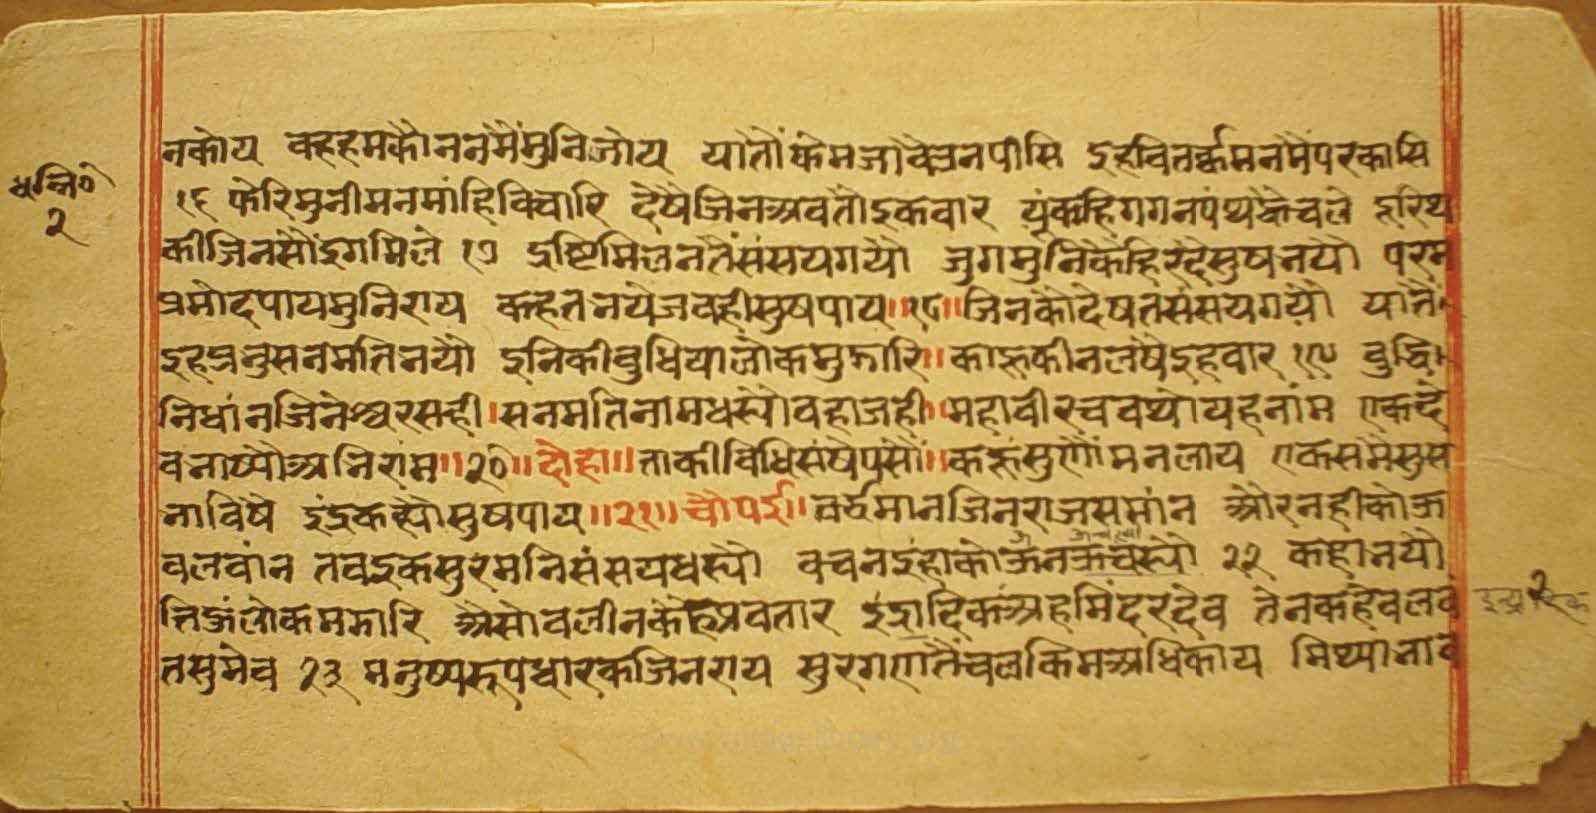 नकोय वहहमकौननमैंमुनिजोय यातौंकेमजावेत्रनपीसि इहवितर्कमनमैंपरकासि
१६ फेरिमुनीमनमांहिविचारि देषैजिनअवतौइकवार यूंकहिगगनपंथकैचले हरिष
कीजिनसौंइगमिले १७ द्रष्टिमिलनतैंसंसयगयो जुगमुनिकैहिरदैसुषनयो परम
प्रमोदपायमुनिराय कहतनयेजवहीसुषपाय॥१८॥जिनकोदेषतसंसयगयौ यातैं
इहप्रनुसनमतिनयौ इनिकीवुधियालोकमुझारि॥काहूकीनलषैइहवार १९ वुद्धि
निधांनजिनेश्वरसही।सनमतिनामधस्यौवहाजही।महावीरचवथोयहनांम एकदे
वनाष्यौअनिरांम॥२०॥दोहा॥ताकीविधिसंषेपसौं॥कहूंसुणौंमनलाय एकसमैसुस
नाविषै इंद्रकह्यौसुषपाय॥२१॥चौपई॥वर्द्धमानजिनराजसमांन औरनहीकोऊ
वलवांन तवइकसुरमनिसंसयधस्यौ वचनइंहाकोऊनऊचस्यौ २२ कहानयौ
तिऊंलोकमझारि औसोवलीनकोहूअवतार इंद्रादिकअहमिंदरदेव तेनकहैवलवं
तसुमेव २३ मनुष्यरूपधारकजिनराय सुरगणतैंवलकिमअधिकाय मिथ्यानाव
२
२